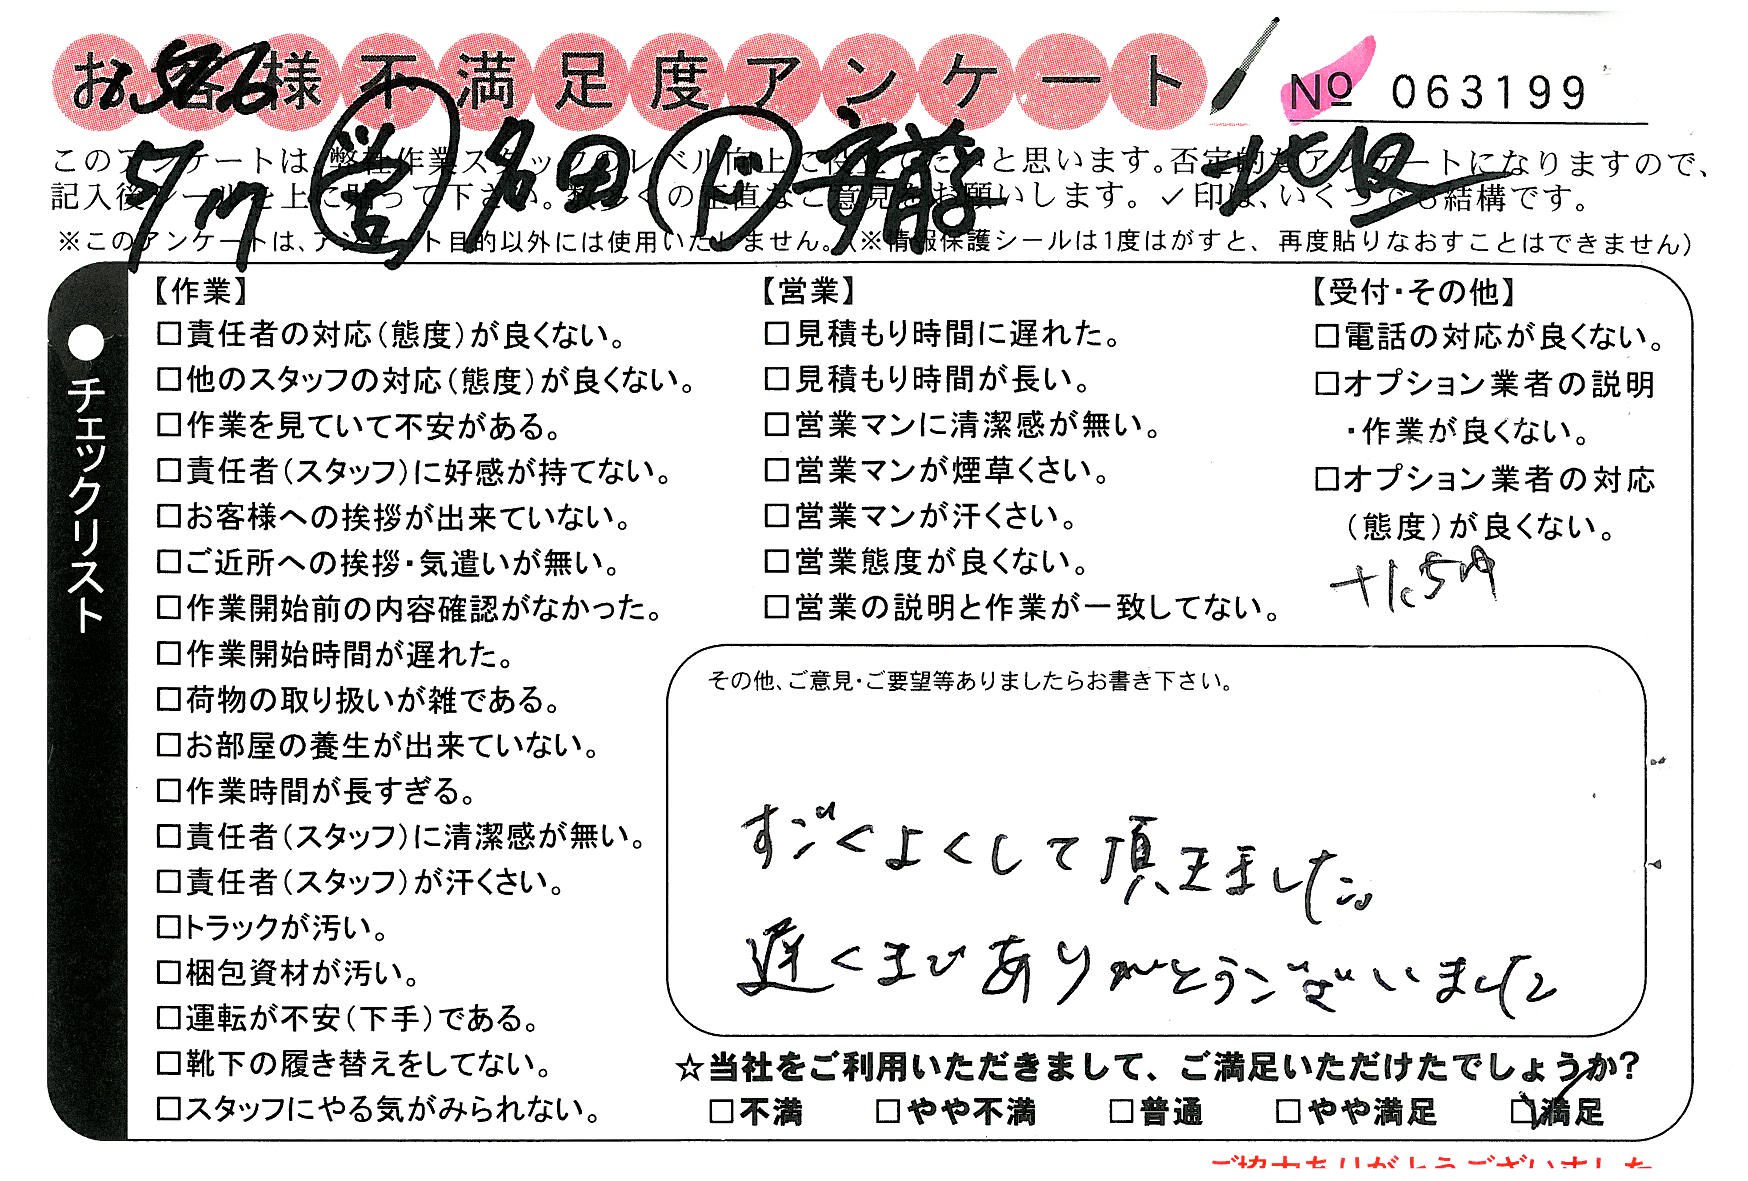 お客様不満足度アンケート
№ 063199
5/17 営 名田 ド 斉藤 北段
このアンケートは、弊社作業スタッフのレベル向上に役立てたいと思います。否定的なアンケートになりますので、
記入後シールを上に貼って下さい。数多くの正直なご意見をお願いします。✓印は、いくつでも結構です。
※このアンケートは、アンケート目的以外には使用いたしません。(※情報保護シールは1度はがすと、再度貼りなおすことはできません)
●チェックリスト
【作業】
□責任者の対応(態度)が良くない。
□他のスタッフの対応(態度)が良くない。
□作業を見ていて不安がある。
□責任者(スタッフ)に好感が持てない。
□お客様への挨拶が出来ていない。
□ご近所への挨拶・気遣いが無い。
□作業開始前の内容確認がなかった。
□作業開始時間が遅れた。
□荷物の取り扱いが雑である。
□お部屋の養生が出来ていない。
□作業時間が長すぎる。
□責任者(スタッフ)に清潔感が無い。
□責任者(スタッフ)が汗くさい。
□トラックが汚い。
□梱包資材が汚い。
□運転が不安(下手)である。
□靴下の履き替えをしてない。
□スタッフにやる気がみられない。
【営業】
□見積もり時間に遅れた。
□見積もり時間が長い。
□営業マンに清潔感が無い。
□営業マンが煙草くさい。
□営業マンが汗くさい。
□営業態度が良くない。
□営業の説明と作業が一致してない。
【受付・その他】
□電話の対応が良くない。
□オプション業者の説明
・作業が良くない。
□オプション業者の対応
(態度)が良くない。
その他、ご意見・ご要望等ありましたらお書き下さい。
すごくよくして頂きました。
遅くまでありがとうございました
☆当社をご利用いただきまして、ご満足いただけたでしょうか?
□不満 □やや不満 □普通 □やや満足 ☑満足
ご協力ありがとうございました